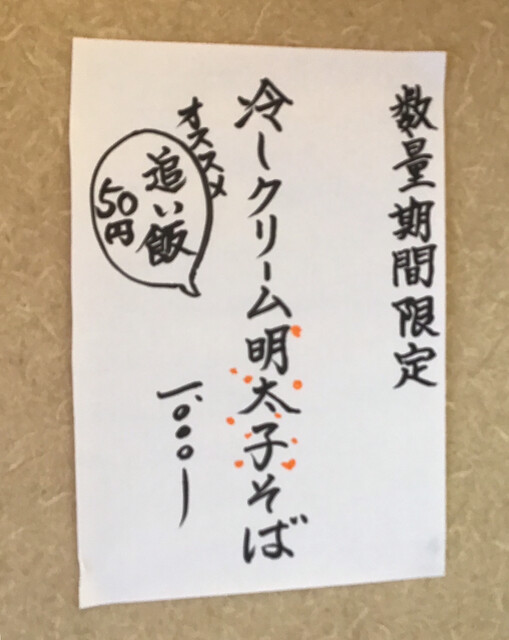 数量期間限定
冷しクリーム明太子そば
オススメ
追い飯
50円
一、〇〇〇ー